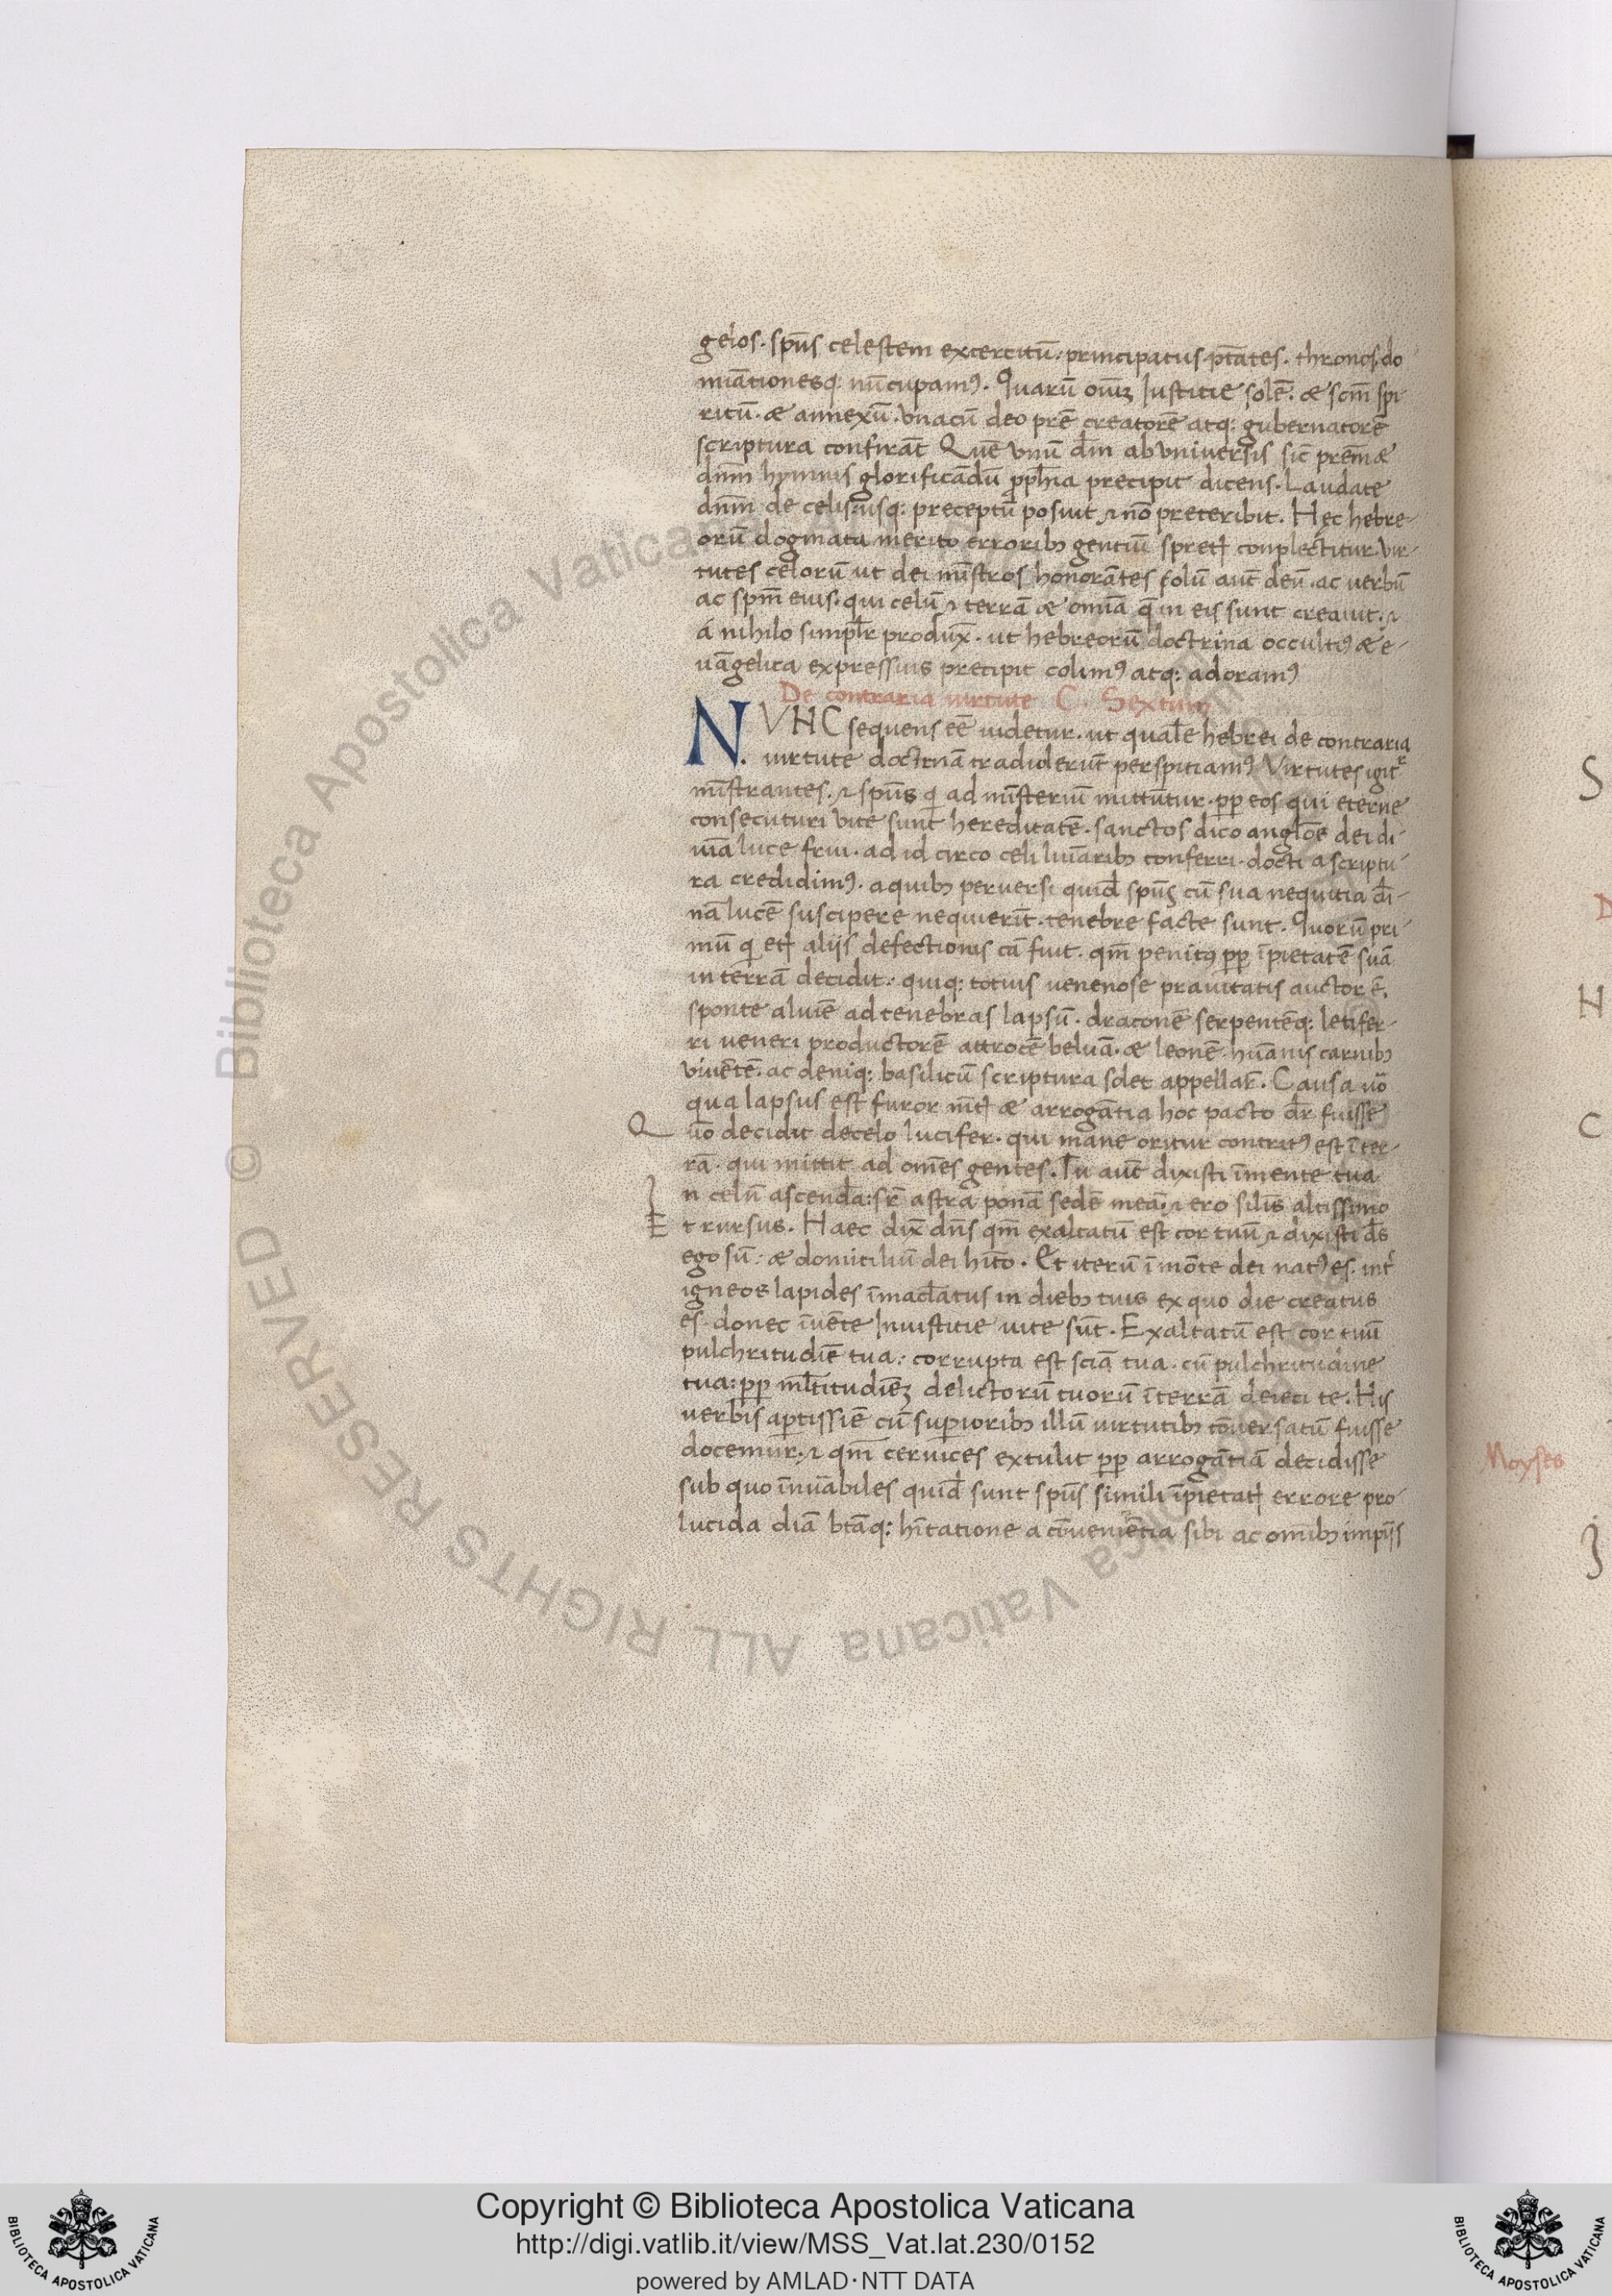 gelos. spūs celestem excercitū: principatus ptātes. thronos do
miātionesq: nūcupamꝰ. Quarū oīuꝫ Iustitie solē. æ scm̄ spi
ritū. æ annexū. vnacū deo prē creatorē atq: gubernatorē
scriptura confirāt Quē vnū dīm ab vniversis sic prēm æ
dnm̄ hymnis glorificādū pph̄ia precipit dicens. Laudate
dnm̄ de celis: usq: preceptū posuit ⁊ nō preteribit. Hęc hebre-
orū dogmata merito erroribꝫ gentiū spretꝭ conplectitur. vir-
tutes celorū ut dei mīstros honorātes solū aut̄ deū. ac verbū
ac spm̄ eius. qui celū ⁊ terrā æ omīa q̄ in eis sunt creauit. ⁊
á nihilo simplr̄ produx̄. ut hebreorū doctrina occultꝰ æ e-
uāgelica expressius precipit colimꝰ atq: adoramꝰ
De contraria uirtute C. Sextum
NVHC sequens eē uidetur. ut qual̄e hebrei de contraria
uirtute doctrinā tradiderūt perspitiamꝰ Virtutes igit̄
mīstrantes. ⁊ spūs q ad mīsteriū mittūtur. pp eos qui eterne
consecuturi vite sunt hereditatē. sanctos dico anglōs dei di-
uīa luce frui. ad id circo celi lumīaribꝫ conferri. docti a scriptu-
ra credidimꝰ. a quibꝫ perversi quid̄ spūs cū sua nequitia di-
nā lucē suscipere nequierīt. tenebre facte sunt. Quorū pri-
mū q etꝭ alijs defectionis cā fuit. qm̄ penitꝰ pp īpietatē suā
in terrā decidit: quiq: totius uenenose prauitatis auctor ē.
sponte aluiē ad tenebras lapsū. draconē serpentēq: letifer-
ri ueneri productorē attrocē beluā. æ leonē. hūanis carnibꝫ
viuētē. ac deniq: basilicū scriptura solet appellar̄. Causa uō
qua lapsus est furor mītꝭ æ arrogātia hoc pacto dr̄ fuisse
Quo decidit de celo lucifer. qui mane oritur contritꝰ est ī ter-
rā. qui mittit ad omēs gentes. Tu aut̄ dixisti ī mente tua
In celū ascendā: sr̄ astra ponā sedē meā. ⁊ ero silīs altissimo
Et rursus. Haec dix̄ dn̄s qm̄ exaltatū est cor tuū ⁊ dixisti dēs
ego sū: æ domiciliū dei hīto. Et iterū ī mōte dei natꝰ es. int̄
igneos lapides īmac̄latus in diebꝫ tuis ex quo die creatus
es. donec īuēte Iniustitie uite sūt. Exaltatū est cor tuū
pulchritudiē tua: corrupta est sciā tua. cū pulchritudine
tua: pp ml̄titudiēꝫ delictorū tuorū ī terrā deieci te. His
uerbis aptissiē cū superioribꝫ illū uirtutibꝫ cōuersatū fuisse
docemur: ⁊ qm̄ ceruices extulit pp arrogātiā decidisse
sub quo īnūabiles quid̄ sunt spūs simili īpietatꝭ errore pro
lucida diā btāq: hītatione a cōueniētia sibi ac omībꝫ impijs
S
H
C
Moyses
Copyright © Biblioteca Apostolica Vaticana
http://digi.vatlib.it/view/MSS_Vat.lat.230/0152
powered by AMLAD·NTT DATA